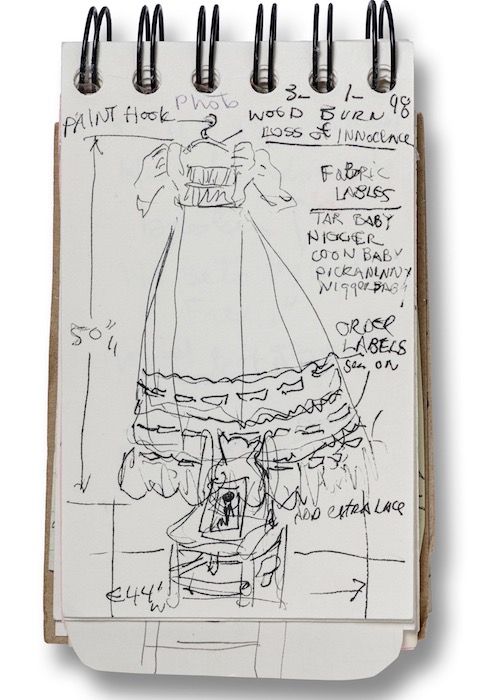 Photo
3- 1- 98
PAINT HOOK
WOOD BURN
LOSS of INNOCENCE
FABRIC
LABLES
TAR BABY
NIGGER
COON BABY
PICKANINNY
NIGGERBABY
50"
ORDER
LABELS
sew on
ADD extra Lace
44"
W